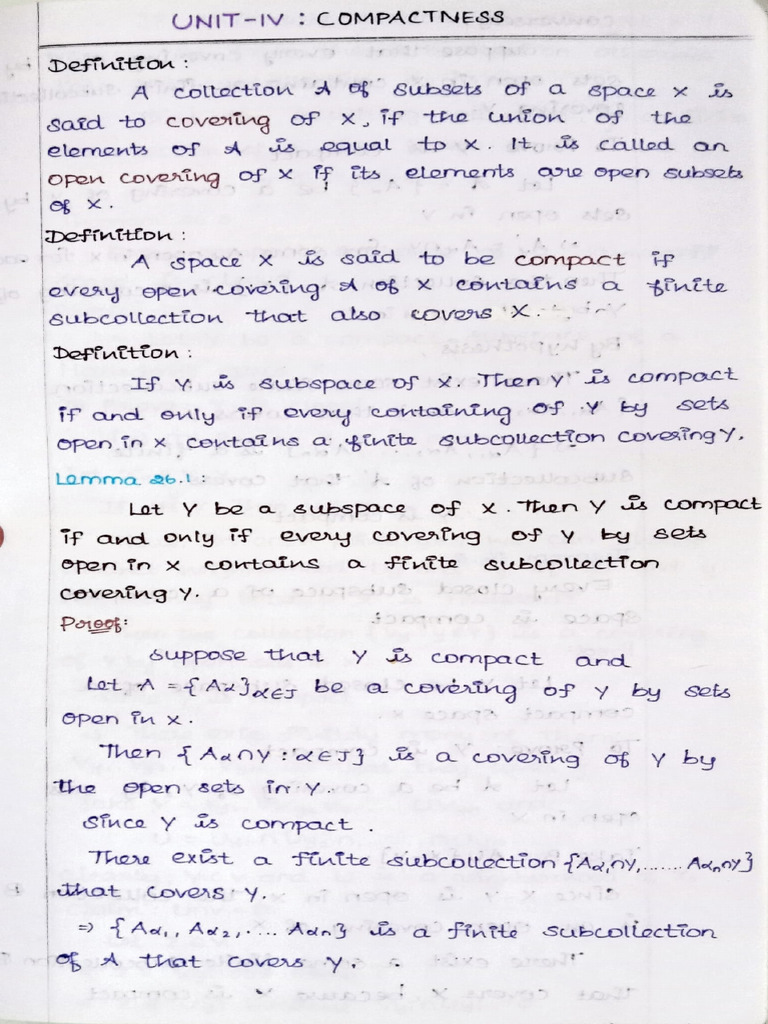 UNIT-IV : COMPACTNESS
Definition :
A collection A of subsets of a space X is
said to covering of X, if the union of the
elements of A is equal to X. It is called an
open covering of X if its elements are open subsets
of X.
Definition :
A space X is said to be compact if
every open covering A of X contains a finite
subcollection that also covers X.
Definition :
If Y is subspace of X. Then Y is compact
if and only if every containing of Y by sets
open in X contains a finite subcollection covering Y.
Lemma 26.1 :
Let Y be a subspace of X. Then Y is compact
if and only if every covering of Y by sets
open in X contains a finite subcollection
covering Y.
Proof:
Suppose that Y is compact and
Let A = {Aα}α∈J be a covering of Y by sets
open in X.
Then {Aα∩Y : α∈J} is a covering of Y by
the open sets in Y.
Since Y is compact.
There exist a finite subcollection {Aα₁∩Y,......Aαₙ∩Y}
that covers Y.
⇒ {Aα₁, Aα₂,.... Aαn} is a finite subcollection
of A that covers Y.